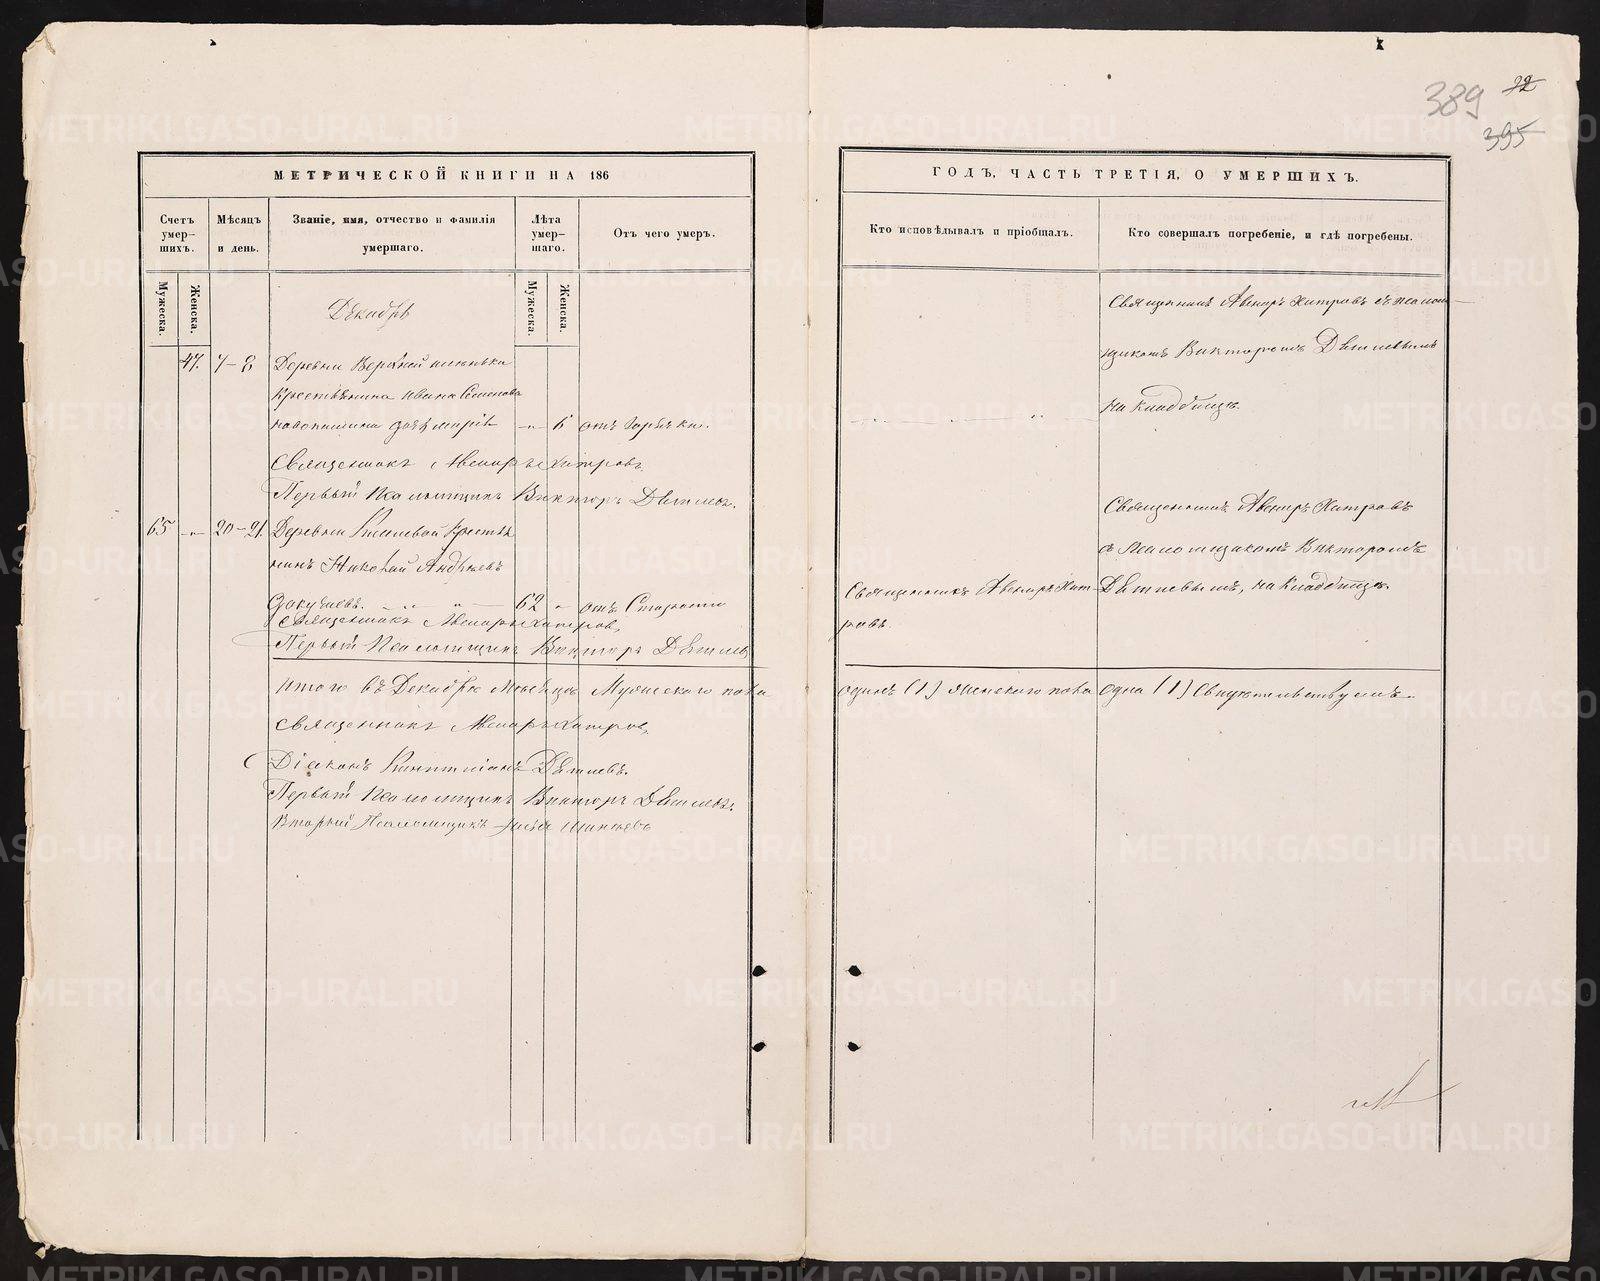 389 22
395
МЕТРИЧЕСКОЙ КНИГИ НА 186
Счетъ умер-шихъ.
Мѣсяцъ и день.
Званіе, имя, отчество и фамилія умершаго.
Лѣта умер-шаго.
Отъ чего умеръ.
Мужеска.
Женска.
Мужеска.
Женска.
Декабрь
47. 7-8 Деревни Верхней
Крестьянина Ивана Семенова
дочь Марія - „ - 6 отъ Горячки.
Священникъ Авениръ Хитровъ.
Первый Псаломщикъ Викторъ Дѣтлевъ.
65 - „ - 20-21. Деревни Киселевой Крестья
нинъ Николай Андреевъ
Докучаевъ. 62 „ отъ Старости
Священникъ Авениръ Хитровъ,
Первый Псаломщикъ Викторъ Дѣтлевъ
Итого въ Декабрѣ Мѣсяцѣ Мужескаго пола
Священникъ Авениръ Хитровъ,
Діаконъ Дѣтлевъ.
Первый Псаломщикъ Викторъ Дѣтлевъ.
Вторый Псаломщикъ
ГОДЪ, ЧАСТЬ ТРЕТІЯ, О УМЕРШИХЪ.
Кто исповѣдывалъ и пріобщалъ.
Кто совершалъ погребеніе, и гдѣ погребены.
Священникъ Авениръ Хитровъ съ Псалом-
щикомъ Викторомъ Дѣтлевымъ
на Кладбищѣ.
Священникъ Авениръ Хитровъ
съ Псаломщикомъ Викторомъ
Священникъ Авениръ Хит- Дѣтлевымъ, на Кладбищѣ.
ровъ.
одинъ (1) Женскаго пола одна (1) Свидѣтельствуемъ.
METRIKI.GASO-URAL.RU